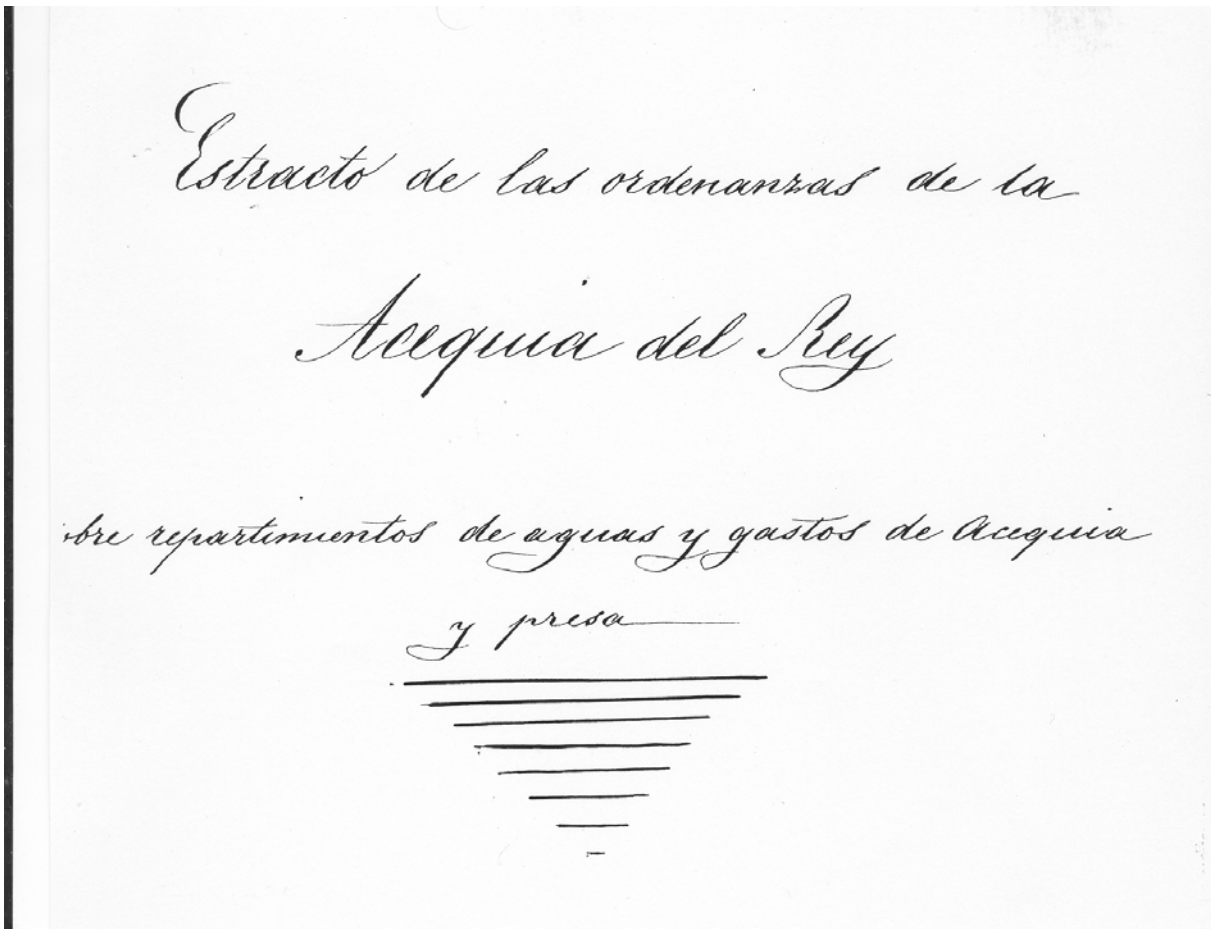 Estracto de las ordenanzas de la
Acequia del Rey
obre repartimientos de aguas y gastos de Acequia
y presa